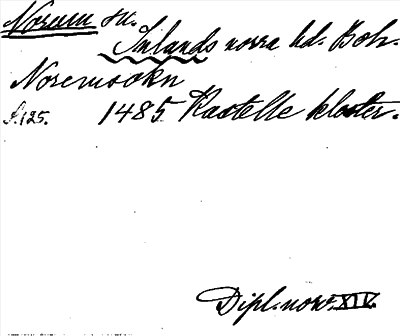 Norum sn.
Inlands norra hd. Boh.
Noremsokn
s.125. 1485 Kastelle kloster.
Dipl. norv. XIV.